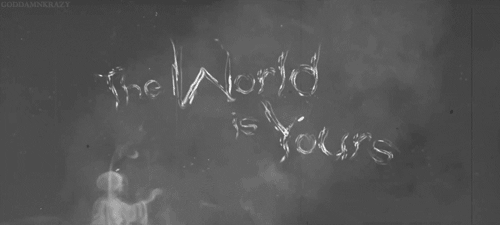 GODDAMNKRAZY
The World
is Yours